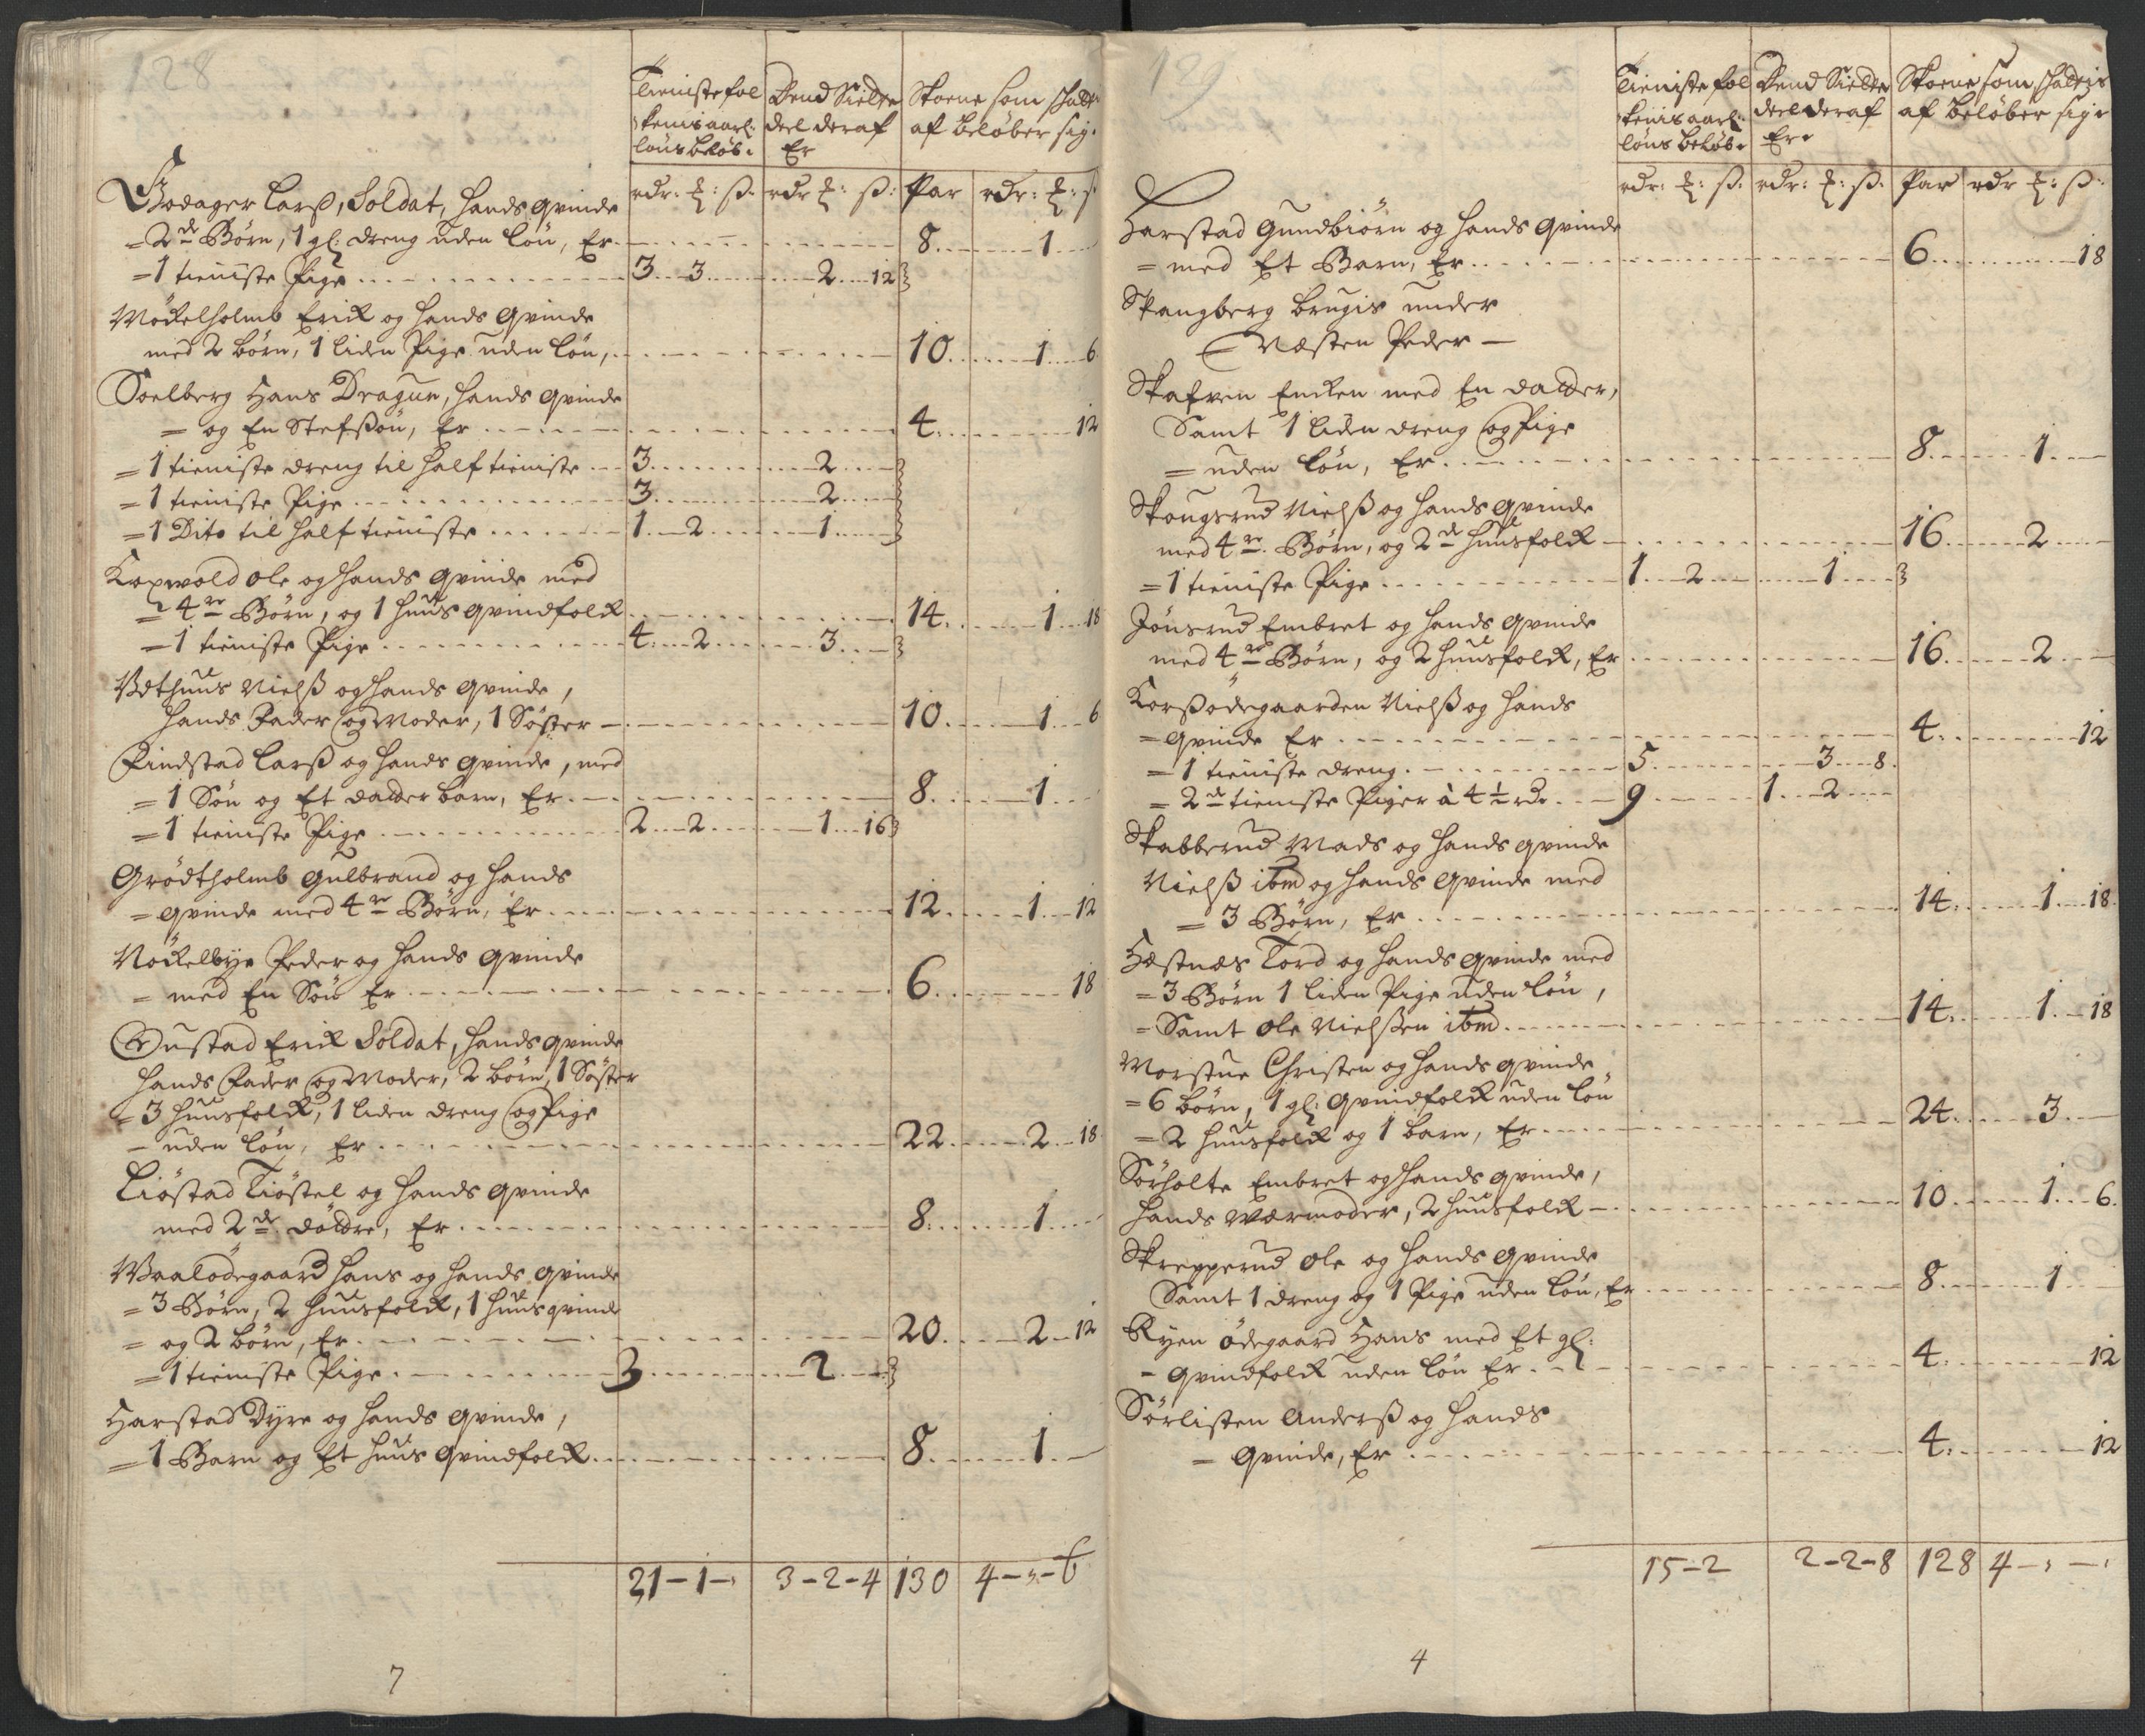 128
Tienistefol Dend Sielfte Skoene som Skatt
kenis aarl: deel deraf af beløber sig.
løns beløb. Er
rdr: ƶ: ß. rdr ƶ: ß: Par rdr: ƶ: ß
Godager Larß, Soldat, hands qvinde
= 2de Børn, 1 gl: dreng uden løn, Er 8 1
= 1 tieniste Pige 3 3 2 12
Møkelholmb Erick og hands qvinde
med 2 børn, 1 liden Pige uden løn, 10 1 6
Soelberg Hans Dragun, hands qvinde
= og En Stefßøn, Er 4 12
= 1 tieniste dreng til half tieniste 3 2
= 1 tieniste Pige 3 2
= 1 Dito til half tieniste 1 2 1
Kopwold Ole og hands qvinde med
= 4re Børn, og 1 huus qvindfolk 14 1 18
= 1 tieniste Pige 4 2 3
Udthuus Nielß og hands qvinde,
hands Fader og Moder, 1 Søster 10 1 6
Findstad Larß og hands qvinde, med
= 1 Søn og Et datter barn, Er 8 1
= 1 tieniste Pige 2 2 1 16
Grødtholmb Gulbrand og hands
= qvinde med 4re Børn, Er 12 1 12
Nøkelbye Peder og hands qvinde
= med En Søn Er 6 18
Gustad Erick Soldat, hands qvinde
hands Fader og Moder, 2 børn, 1 Søster
= 3 huusfolck, 1 liden dreng og Pige
- uden løn, Er 22 2 18
Tiøstad Tiøstel og hands qvinde
med 2de døttre, Er 8 1
Waalødegaard Hans og hands qvinde
= 3 Børn, 2 huusfolck, 1 huus qvinde
= og 2 børn, Er 20 2 12
= 1 tieniste Pige 3 2
Harstad Dyre og hands qvinde,
= 1 Barn og Et huus qvindfolck 8 1
21-1- 3-2-4 130 4-,-6
7
129
Tieniste fol Dend Sielfte Skoene som skattis
kenis aarl: deel deraf af beløber sig
løns beløb. Er.
rdr: ƶ: ß. rdr: ƶ: ß. Par rdr ƶ: ß:
Harstad Gundbiørn og hands qvinde
= med Et Barn, Er 6 18
Spangberg brugis under
Næsten Peder
Skafven Encken med En datter,
Samt 1 liden dreng og Pige
= uden løn, Er 8 1
Skougsrud Nielß og hands qvinde
med 4re Børn, og 2de huusfolck 16 2
= 1 tieniste Pige 1 2 1
Jønsrud Embret og hands qvinde
med 4re Børn, og 2 huusfolck, Er 16 2
Korßødegaarden Nielß og hands
= qvinde Er 4 12
= 1 tieniste dreng 5 3 8
= 2de tieniste Piger à 4½ rdr 9 1 2
Skabberud Mads og hands qvinde
Nielß ibm og hands qvinde med
= 3 Børn, Er 14 1 18
Hestnæs Tord og hands qvinde med
= 3 Børn 1 liden Pige uden løn,
= Samt Ole Nielßen ibm 14 1 18
Morstue Christen og hands qvinde,
= 6 børn, 1 gl: qvindfolck uden løn
= 2 huusfolck og 1 barn, Er 24 3
Sørholte Embret og hands qvinde,
hands Værmoder, 2 huusfolck 10 1 6
Skrepperud Ole og hands qvinde
Samt 1 dreng og 1 Pige uden løn, Er 8 1
Ryen ødegaard Hans med Et gl:
- qvindfolck uden løn Er 4 12
Sørlisten Anderß og hands
= qvinde, Er 4 12
15-2 2-2-8 128 4-,-,
4